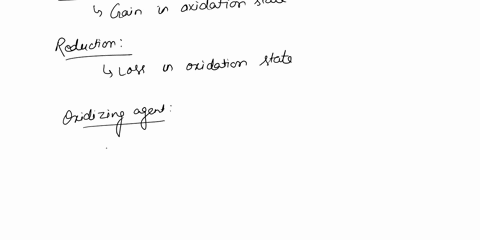 ↳ Gain in oxidation state
Reduction:
↳ Loss in oxidation state
Oxidizing agent: